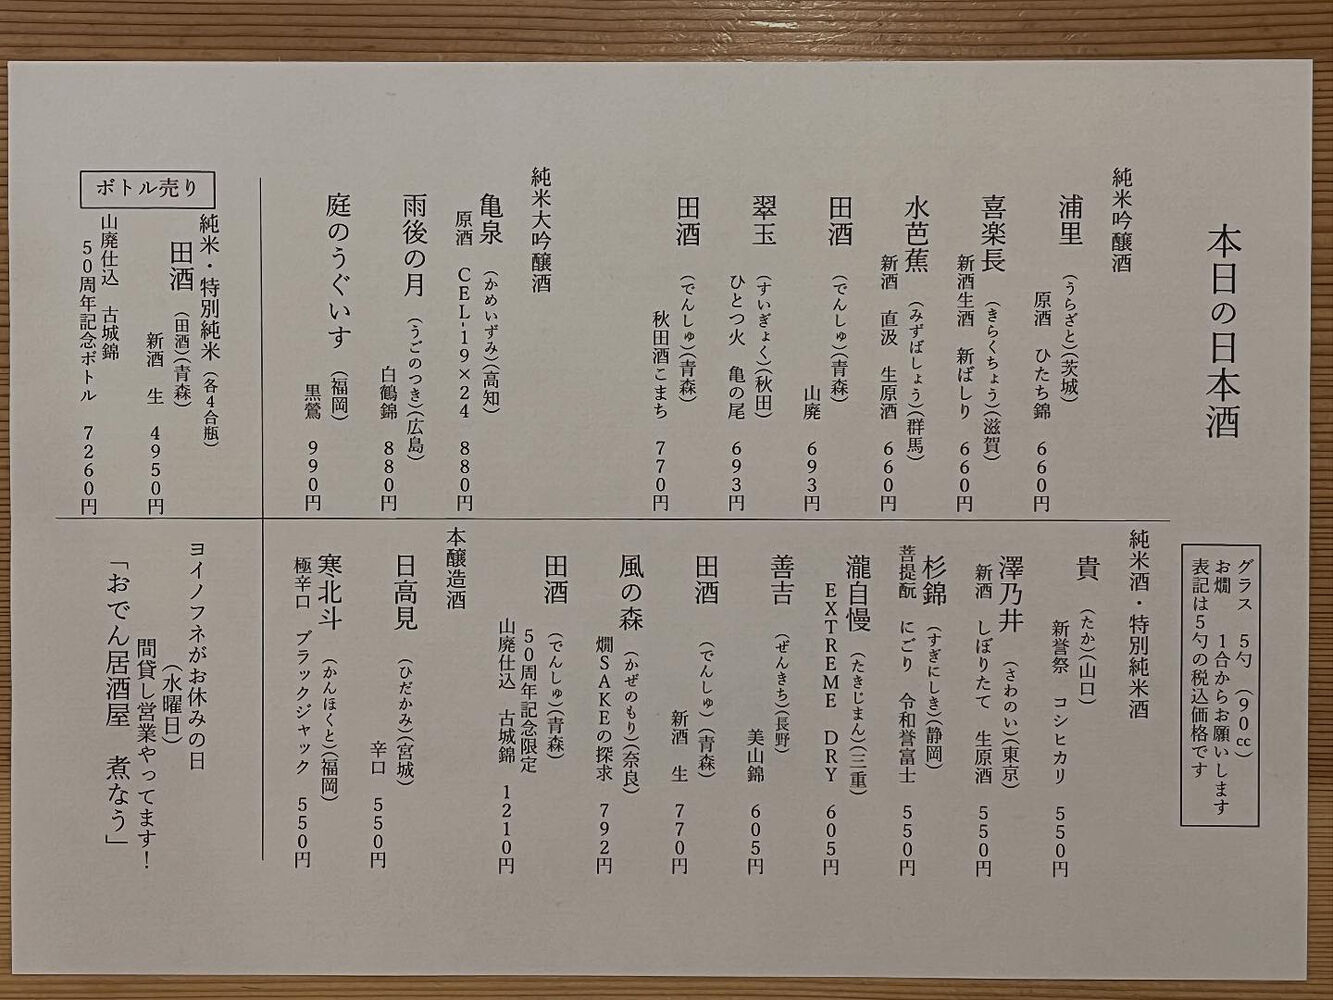 本日の日本酒
グラス　5勺（90㏄）
お燗　1合からお願いします
表記は5勺の税込価格です
純米吟醸酒
浦里（うらざと）（茨城）
原酒　ひたち錦　660円
喜楽長（きらくちょう）（滋賀）
新酒生酒　新ばしり　660円
水芭蕉（みずばしょう）（群馬）
新酒　直汲　生原酒　660円
田酒（でんしゅ）（青森）
山廃　693円
翠玉（すいぎょく）（秋田）
ひとつ火　亀の尾　693円
田酒（でんしゅ）（青森）
秋田酒こまち　770円
純米大吟醸酒
亀泉（かめいずみ）（高知）
原酒　CEL-19×24　880円
雨後の月（うごのつき）（広島）
白鶴錦　880円
庭のうぐいす（福岡）
黒鶯　990円
純米酒・特別純米酒
貴（たか）（山口）
新誉祭　コシヒカリ　550円
澤乃井（さわのい）（東京）
新酒　しぼりたて　生原酒　550円
杉錦（すぎにしき）（静岡）
菩提酛　にごり　令和誉富士　550円
瀧自慢（たきじまん）（三重）
EXTREME　DRY　605円
善吉（ぜんきち）（長野）
美山錦　605円
田酒（でんしゅ）（青森）
新酒　生　770円
風の森（かぜのもり）（奈良）
燗SAKEの探求　792円
田酒（でんしゅ）（青森）
50周年記念限定
山廃仕込　古城錦　1210円
本醸造酒
日高見（ひだかみ）（宮城）
辛口　550円
寒北斗（かんほくと）（福岡）
極辛口　ブラックジャック　550円
ボトル売り
純米・特別純米（各4合瓶）
田酒（田酒）（青森）
新酒　生　4950円
山廃仕込　古城錦
50周年記念ボトル　7260円
ヨイノフネがお休みの日
（水曜日）
間貸し営業やってます！
「おでん居酒屋　煮なう」